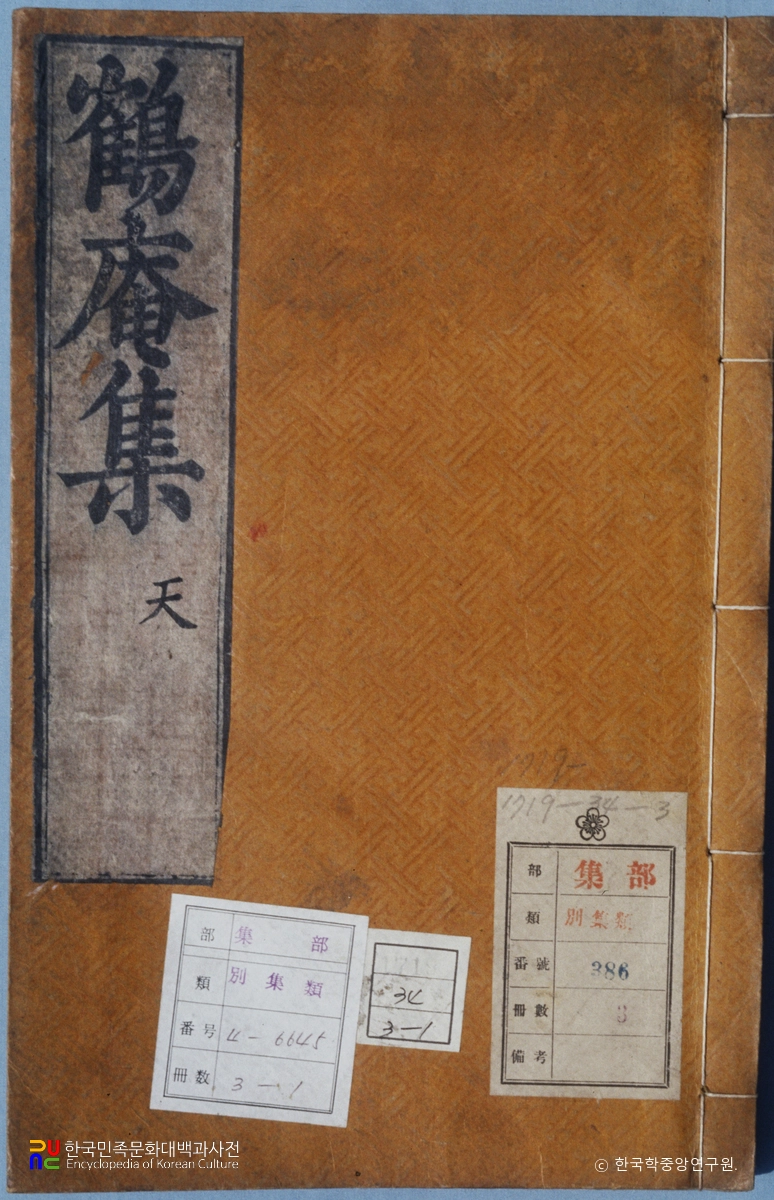 鶴庵集
天
1719-34-3
部 集部
類 別集類
番號 386
冊數 3
備考
部 集部
類 別集類
番号 4-6645
冊数 3-1
34
3-1
한국민족문화대백과사전
Encyclopedia of Korean Culture
© 한국학중앙연구원